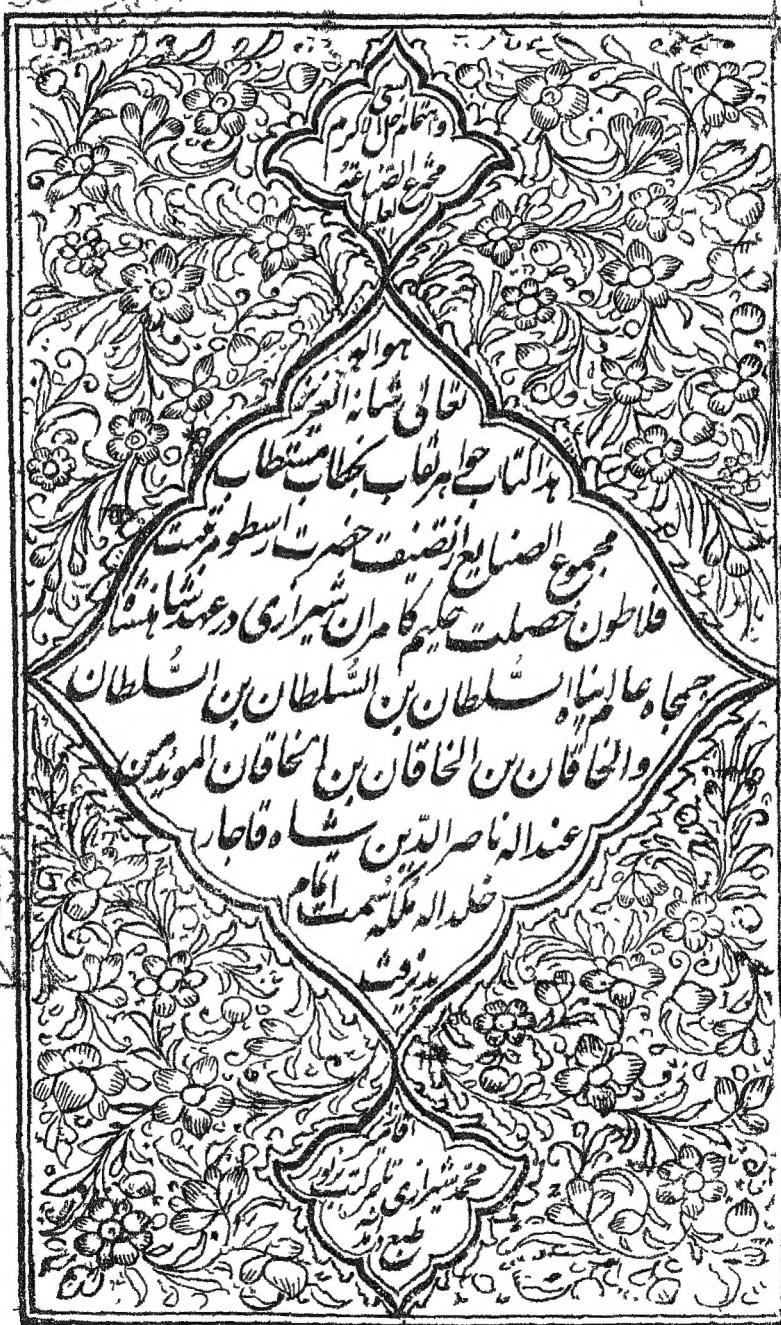 واهتمام
هو الله
تعالی شانه العزیز
هذا کتاب جواهر نقاب بخطاب مستطاب
مجموع الصنایع از تصنیف حضرت ارسطو مرتبت
فلاطون خصلت حکیم کامران شیرازی در عهد شاهنشاه
جمجاه عالم پناه السُّلطان بن السُّلطان بن السُّلطان
والخاقان بن الخاقان بن الخاقان المؤید من
عند الله ناصر الدّین شاه قاجار
خلد الله ملکه سمت اتمام
پذیرفت
محمد شیرازی تاجر کتب
طبع گردید